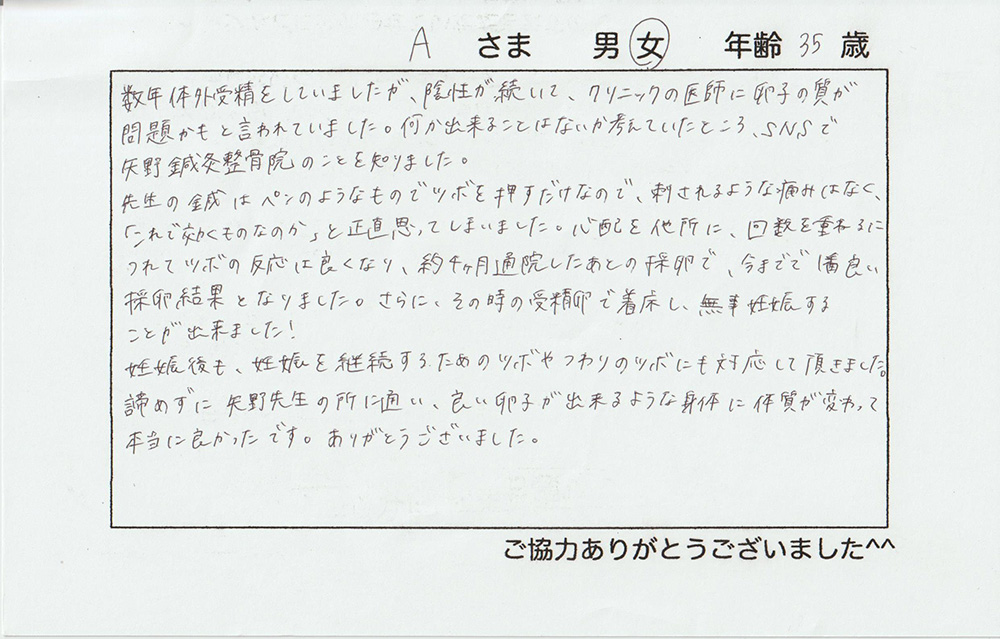 A さま 男 女 年齢 35 歳
数年体外受精をしていましたが、陰性が続いて、クリニックの医師に卵子の質が
問題かもと言われていました。何か出来ることはないか考えていたところ、SNSで
矢野鍼灸整骨院のことを知りました。
先生の鍼はペンのようなものでツボを押すだけなので、刺されるような痛みはなく、
「これで効くものなのか」と正直思ってしまいました。心配を他所に、回数を重ねるに
つれてツボの反応は良くなり、約4ヶ月通院したあとの採卵で、今までで1番良い
採卵結果となりました。さらに、その時の受精卵で着床し、無事妊娠する
ことが出来ました!
妊娠後も、妊娠を継続するためのツボやつわりのツボにも対応して頂きました。
諦めずに矢野先生の所に通い、良い卵子が出来るような身体に体質が変わって
本当に良かったです。ありがとうございました。
ご協力ありがとうございました^^